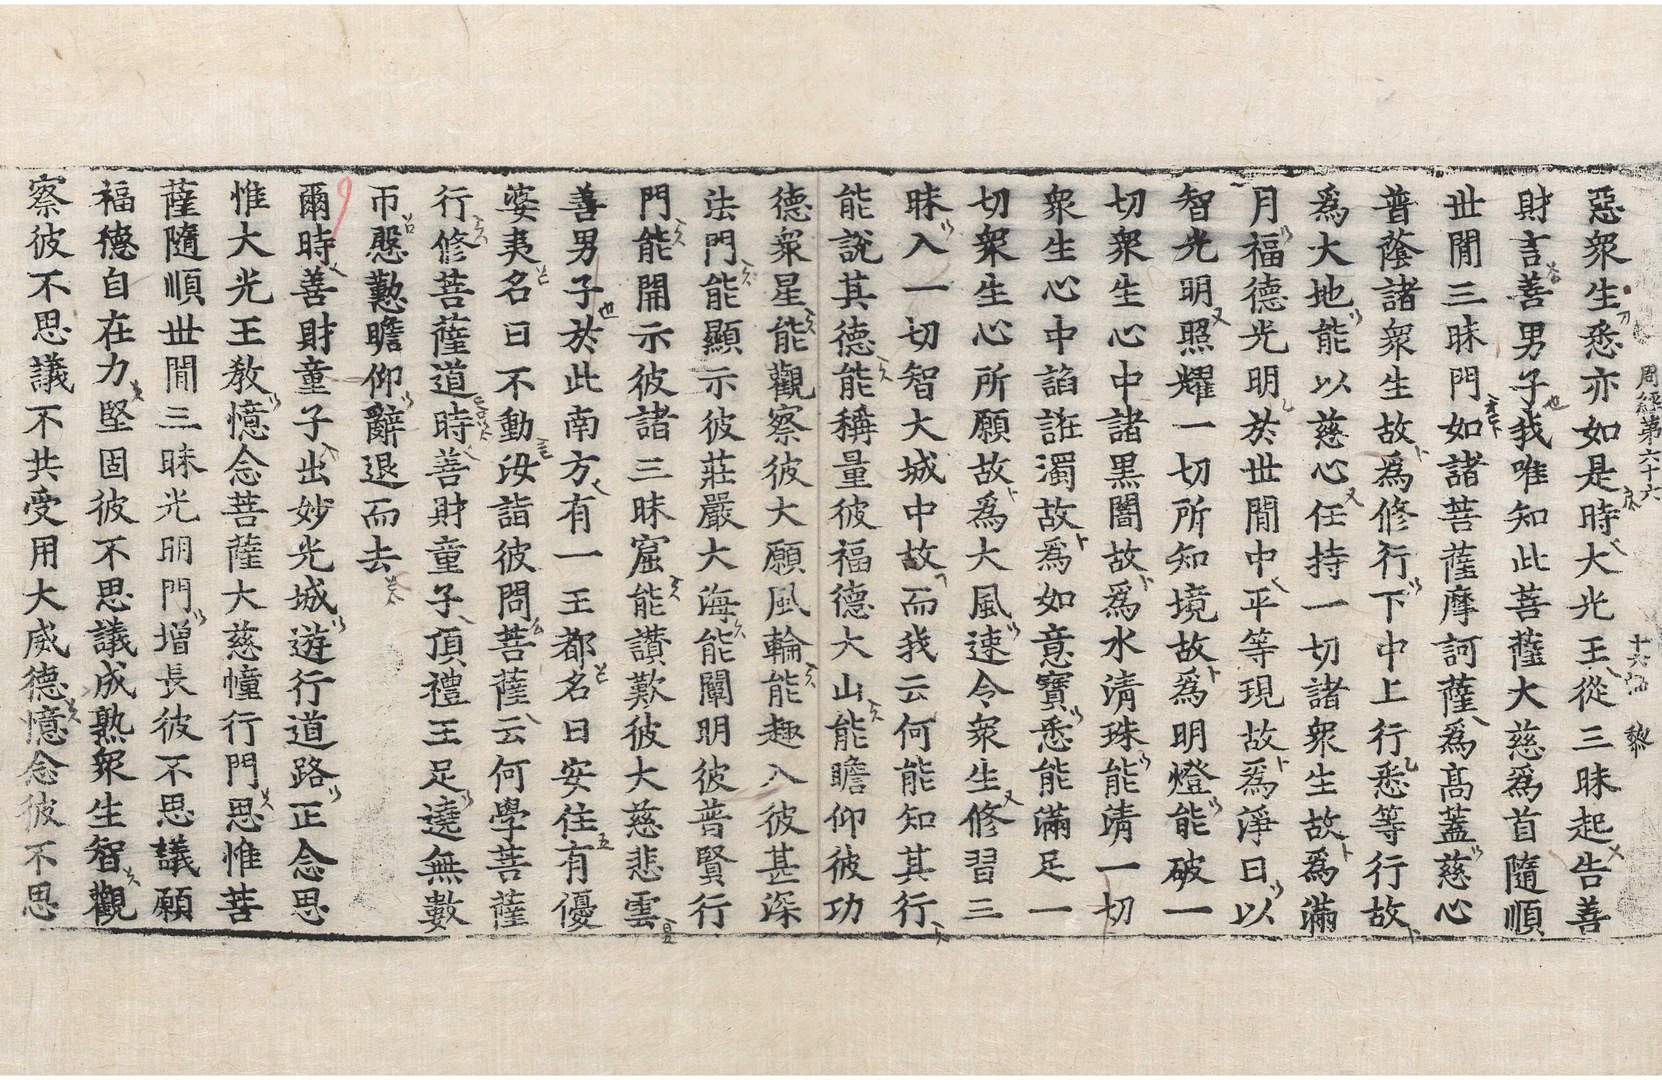 周經第六十六
惡衆生悉亦如是時大光王從三昧起告善
財言善男子我唯知此菩薩大慈爲首隨順
世閒三昧門如諸菩薩摩訶薩爲高蓋慈心
普蔭諸衆生故爲修行下中上行悉等行故
爲大地能以慈心任持一切諸衆生故爲滿
月福德光明於世閒中平等現故爲淨日以
智光明照耀一切所知境故爲明燈能破一
切衆生心中諸黑闇故爲水清珠能清一切
衆生心中諂誑濁故爲如意寶悉能滿足一
切衆生心所願故爲大風速令衆生修習三
昧入一切智大城中故而我云何能知其行
能說其德能稱量彼福德大山能瞻仰彼功
德衆星能觀察彼大願風輪能趣入彼甚深
法門能顯示彼莊嚴大海能闡明彼普賢行
門能開示彼諸三昧窟能讚歎彼大慈悲雲
善男子於此南方有一王都名曰安住有優
婆夷名曰不動汝詣彼問菩薩云何學菩薩
行修菩薩道時善財童子頂禮王足遶無數
帀慇懃瞻仰辭退而去
爾時善財童子出妙光城遊行道路正念思
惟大光王敎憶念菩薩大慈幢行門思惟菩
薩隨順世閒三昧光明門增長彼不思議願
福德自在力堅固彼不思議成熟衆生智觀
察彼不思議不共受用大威德憶念彼不思